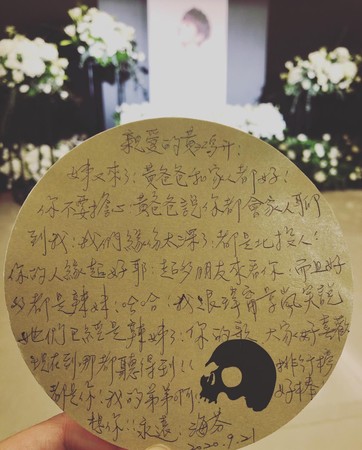 親愛的黃鴻升:
妹又來了!黃爸爸和家人都好!
你不要擔心.黃爸爸說你都會家人聊
到我!我們緣份太深了!都是北投人!
你的人緣超好耶!超多朋友來看你!而且好
多都是辣妹!哈哈!我跟瑋甯景嵐笑說
她們已經是辣妹了!你的歌.大家好喜歡
現在到哪都聽得到!!排行榜
都是你!我的弟弟啊!好棒
想你!!永遠 海芬
2020.9.21